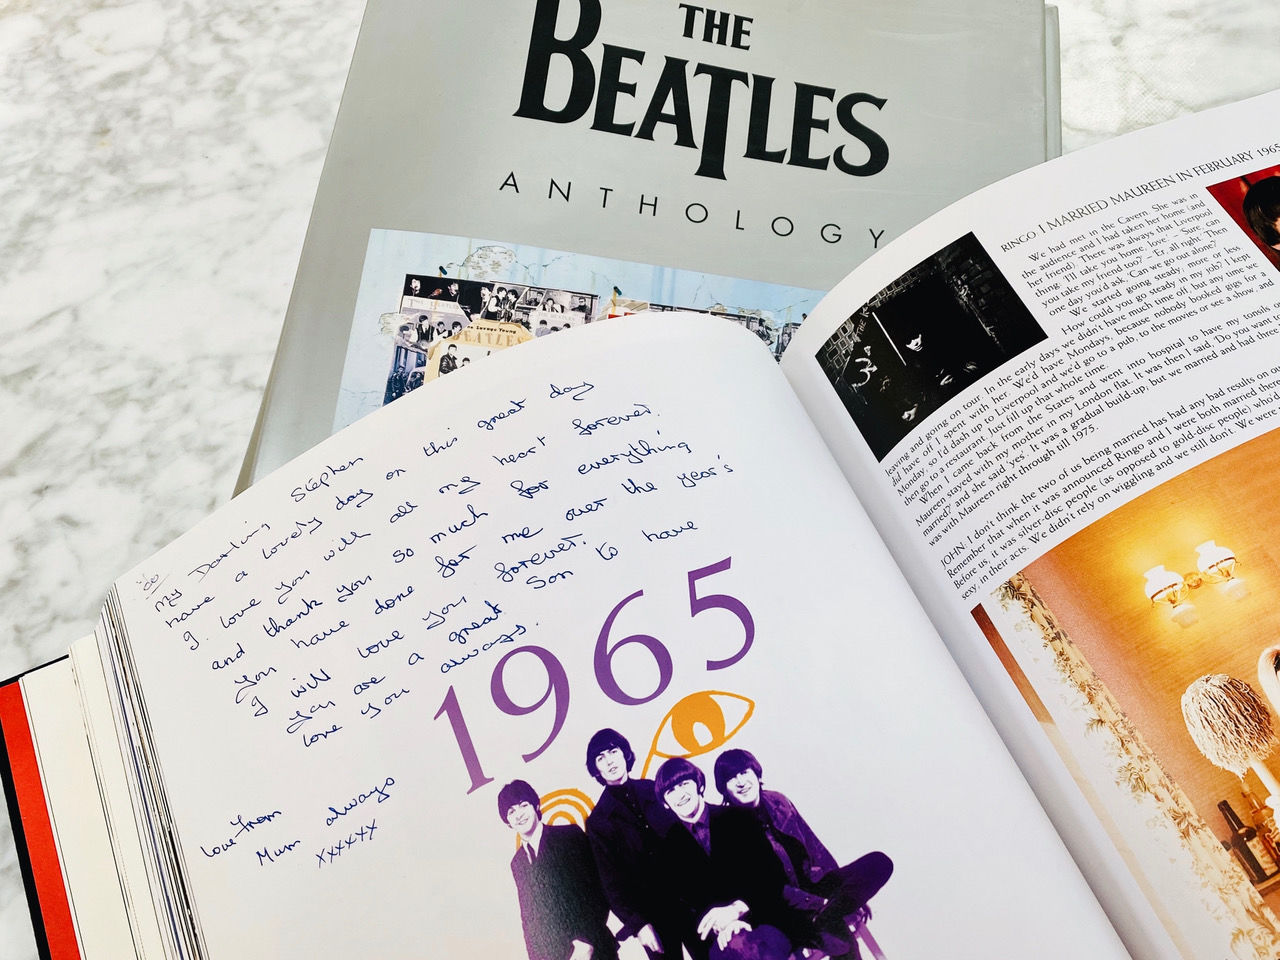 THE
BEATLES
ANTHOLOGY
to
My Darling Stephen
have a lovely day on this great day
I love you with all my heart forever.
and thank you so much for everything
you have done for me over the year's
I will love you forever.
you are a great Son to have
love you always.
love from
Mum always
xxxxxx
1965
RINGO I MARRIED MAUREEN IN FEBRUARY 1965
We had met in the Cavern. She was in
the audience and I had taken her home (and
her friend). There was always that Liverpool
thing: 'I'll take you home, love.' – 'Sure, can
you take my friend too?' – 'Er, all right.' Then
one day you'd ask, 'Can we go out alone?'
We started going steady, more or less.
How could you go steady in my job? I kept
leaving and going on tour. In the early days we didn't have much time off, but any time we
did have off I spent with her. We'd have Mondays, because nobody booked gigs for a
Monday, so I'd dash up to Liverpool and we'd go to a pub, to the movies or see a show, and
then go to a restaurant. Just fill up that whole time.
When I came back from the States and went into hospital to have my tonsils
Maureen stayed with my mother in my London flat. It was then I said, 'Do you want
married?' and she said 'yes'. It was a gradual build-up, but we married and had three
was with Maureen right through till 1975.
JOHN: I don't think the two of us being married has had any bad results on
Remember that when it was announced Ringo and I were both married there
Before us, it was silver-disc people (as opposed to gold-disc people) who'd
sexy, in their acts. We didn't rely on wiggling and we still don't. We were